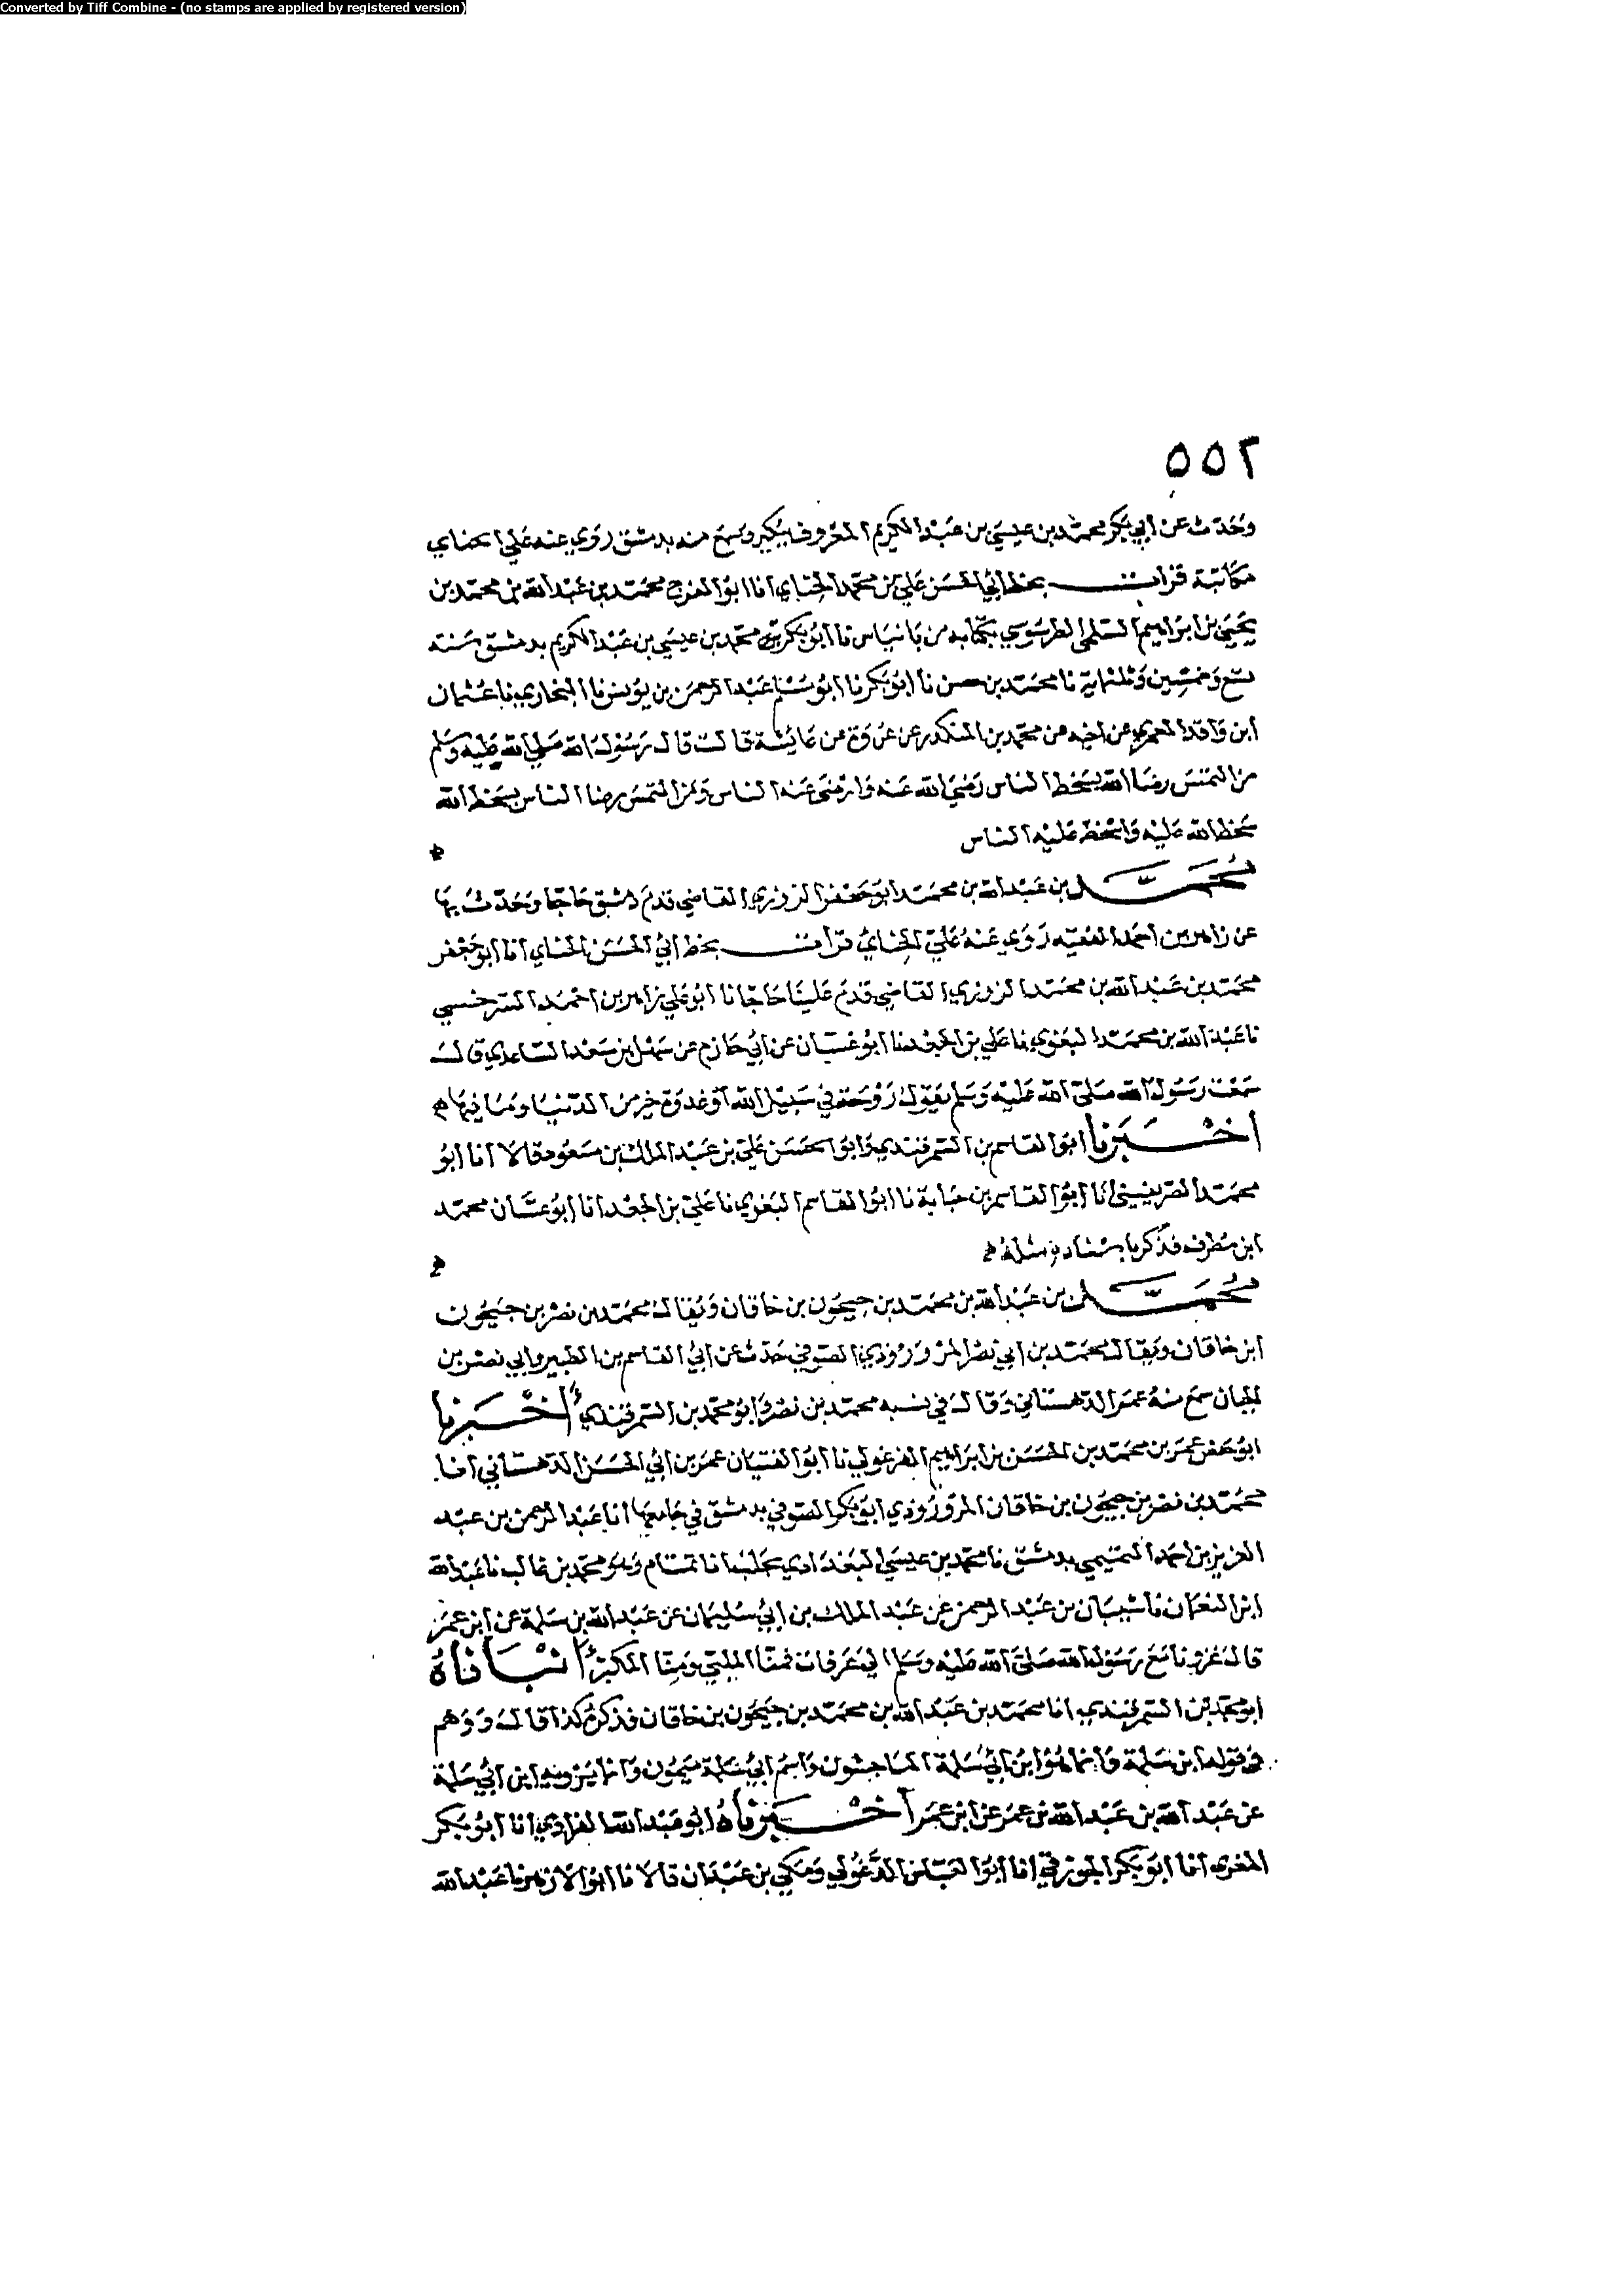 Converted by Tiff Combine - (no stamps are applied by registered version)
٥٥٢
وحدث عن أبي بكر محمد بن عيسى بن عبد الكريم المعروف ببكير وسمع منه بدمشق روى عنه علي الحناي
مكاتبة قرات بخط أبي الحسن علي بن محمد الحناي انا ابو الفرج محمد بن عبد الله بن محمد بن
يحيى بن ابراهيم السلمي الطرسوسي بكتابه من بانياس نا ابو بكر محمد بن عيسى بن عبد الكريم بدمشق سنة
وخمسين وثلثماية نا محمد بن حسن نا ابو بكر نا ابو عبد الرحمن بن يونس نا البخاري نا عثمان
ابن واقد العمري عن اخيه عن محمد بن المنكدر عن عروة عن عايشة قالت قال رسول الله صلى الله عليه وسلم
من التمس رضا الله بسخط الناس رضي الله عنه وارضى عنه الناس ومن التمس رضا الناس بسخط الله
سخط الله عليه واسخط عليه الناس
محمد بن عبد الله بن محمد ابو جعفر الزوزني القاضي قدم دمشق حاجا وحدث بها
عن زاهر بن احمد الفقيه روى عنه علي الحناي قرات بخط أبي الحسن الحناي انا ابو جعفر
محمد بن عبد الله بن محمد الزوزني القاضي قدم علينا حاجا نا ابو علي زاهر بن احمد السرخسي
نا عبد الله بن محمد البغوي نا علي بن الجعد نا ابو غسان عن أبي حازم عن سهل بن سعد الساعدي قال
سمعت رسول الله صلى الله عليه وسلم يقول روحة في سبيل الله أو غدوة خير من الدنيا وما فيها
أخبرنا ابو القاسم بن السمرقندي وابو الحسن علي بن عبد الملك بن مسعود قالا انا ابو
محمد الصريفيني انا ابو القاسم بن حبابة نا ابو القاسم البغوي نا علي بن الجعد انا ابو غسان محمد
ابن مطرف فذكر باسناده مثله
محمد بن عبد الله بن محمد بن جيحون بن خاقان ويقال محمد بن نصر بن جيحون
ابن خاقان ويقال محمد بن أبي نصر المروروذي الصوفي حدث عن أبي القاسم بن الطبيز وأبي نصر بن
الجبان سمع منه عمر الدهستاني وقال في نسبه محمد بن نصر وابو محمد بن السمرقندي أخبرنا
ابو حفص عمر بن محمد بن الحسن بن ابراهيم الفرغولي نا ابو الفتيان عمر بن أبي الحسن الدهستاني انا
محمد بن نصر بن جيحون بن خاقان المروروذي ابو بكر الصوفي بدمشق في جامعها انا عبد الرحمن بن عبد
العزيز بن احمد التميمي بدمشق نا محمد بن عيسى البغدادي بحلب نا تمتام وهو محمد بن غالب نا عبد الله
ابن النعمان نا شيبان بن عبد الرحمن عن عبد الملك بن أبي سليمان عن عبد الله بن سلمة عن ابن عمر
قال غدونا مع رسول الله صلى الله عليه وسلم الى عرفات فمنا الملبي ومنا المكبر أنبأناه
ابو محمد بن السمرقندي انا محمد بن عبد الله بن محمد بن جيحون بن خاقان فذكره كذا قال ووهم
في قوله ابن سلمة وانما هو ابن أبي سلمة الماجشون واسم أبي سلمة ميمون وانما يرويه ابن أبي سلمة
عن عبد الله بن عبد الله بن عمر عن ابن عمر أخبرناه ابو عبد الله الفراوي انا ابو بكر
المغربي انا ابو بكر الجوزقي انا ابو العباس الدغولي ومكي بن عبدان قالا نا ابو الازهر نا عبد الله